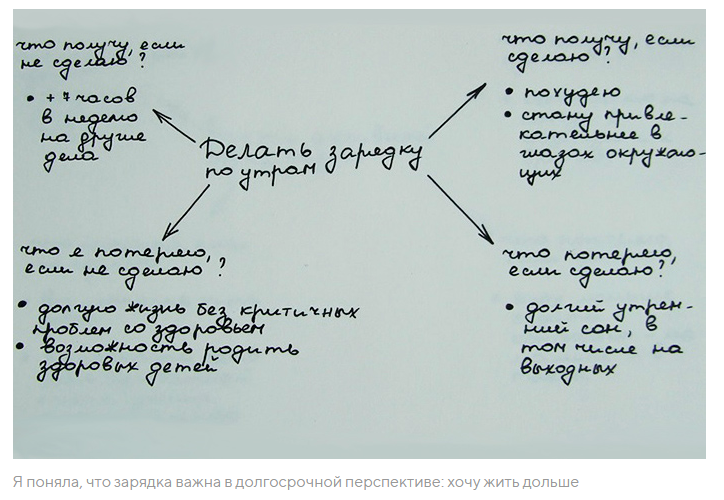 что получу, если
не сделаю?
• + 7 часов
в неделю
на другие
дела
что получу, если
сделаю?
• похудею
• стану привле-
кательнее в
глазах окружаю-
щих
Делать зарядку
по утрам
что я потеряю,
если не сделаю?
• долгую жизнь без критичных
проблем со здоровьем
• возможность родить
здоровых детей
что потеряю,
если сделаю?
• долгий утрен-
ний сон, в
том числе на
выходных
Я поняла, что зарядка важна в долгосрочной перспективе: хочу жить дольше